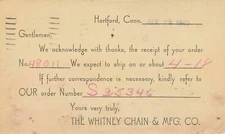 Hartford, Conn.
Gentlemen,
We acknowledge with thanks, the receipt of your order
No. 48011 We expect to ship on or about 4-18
If further correspondence is necessary, kindly refer to
OUR order Number S 25346
Yours very truly,
THE WHITNEY CHAIN & MFG. CO.